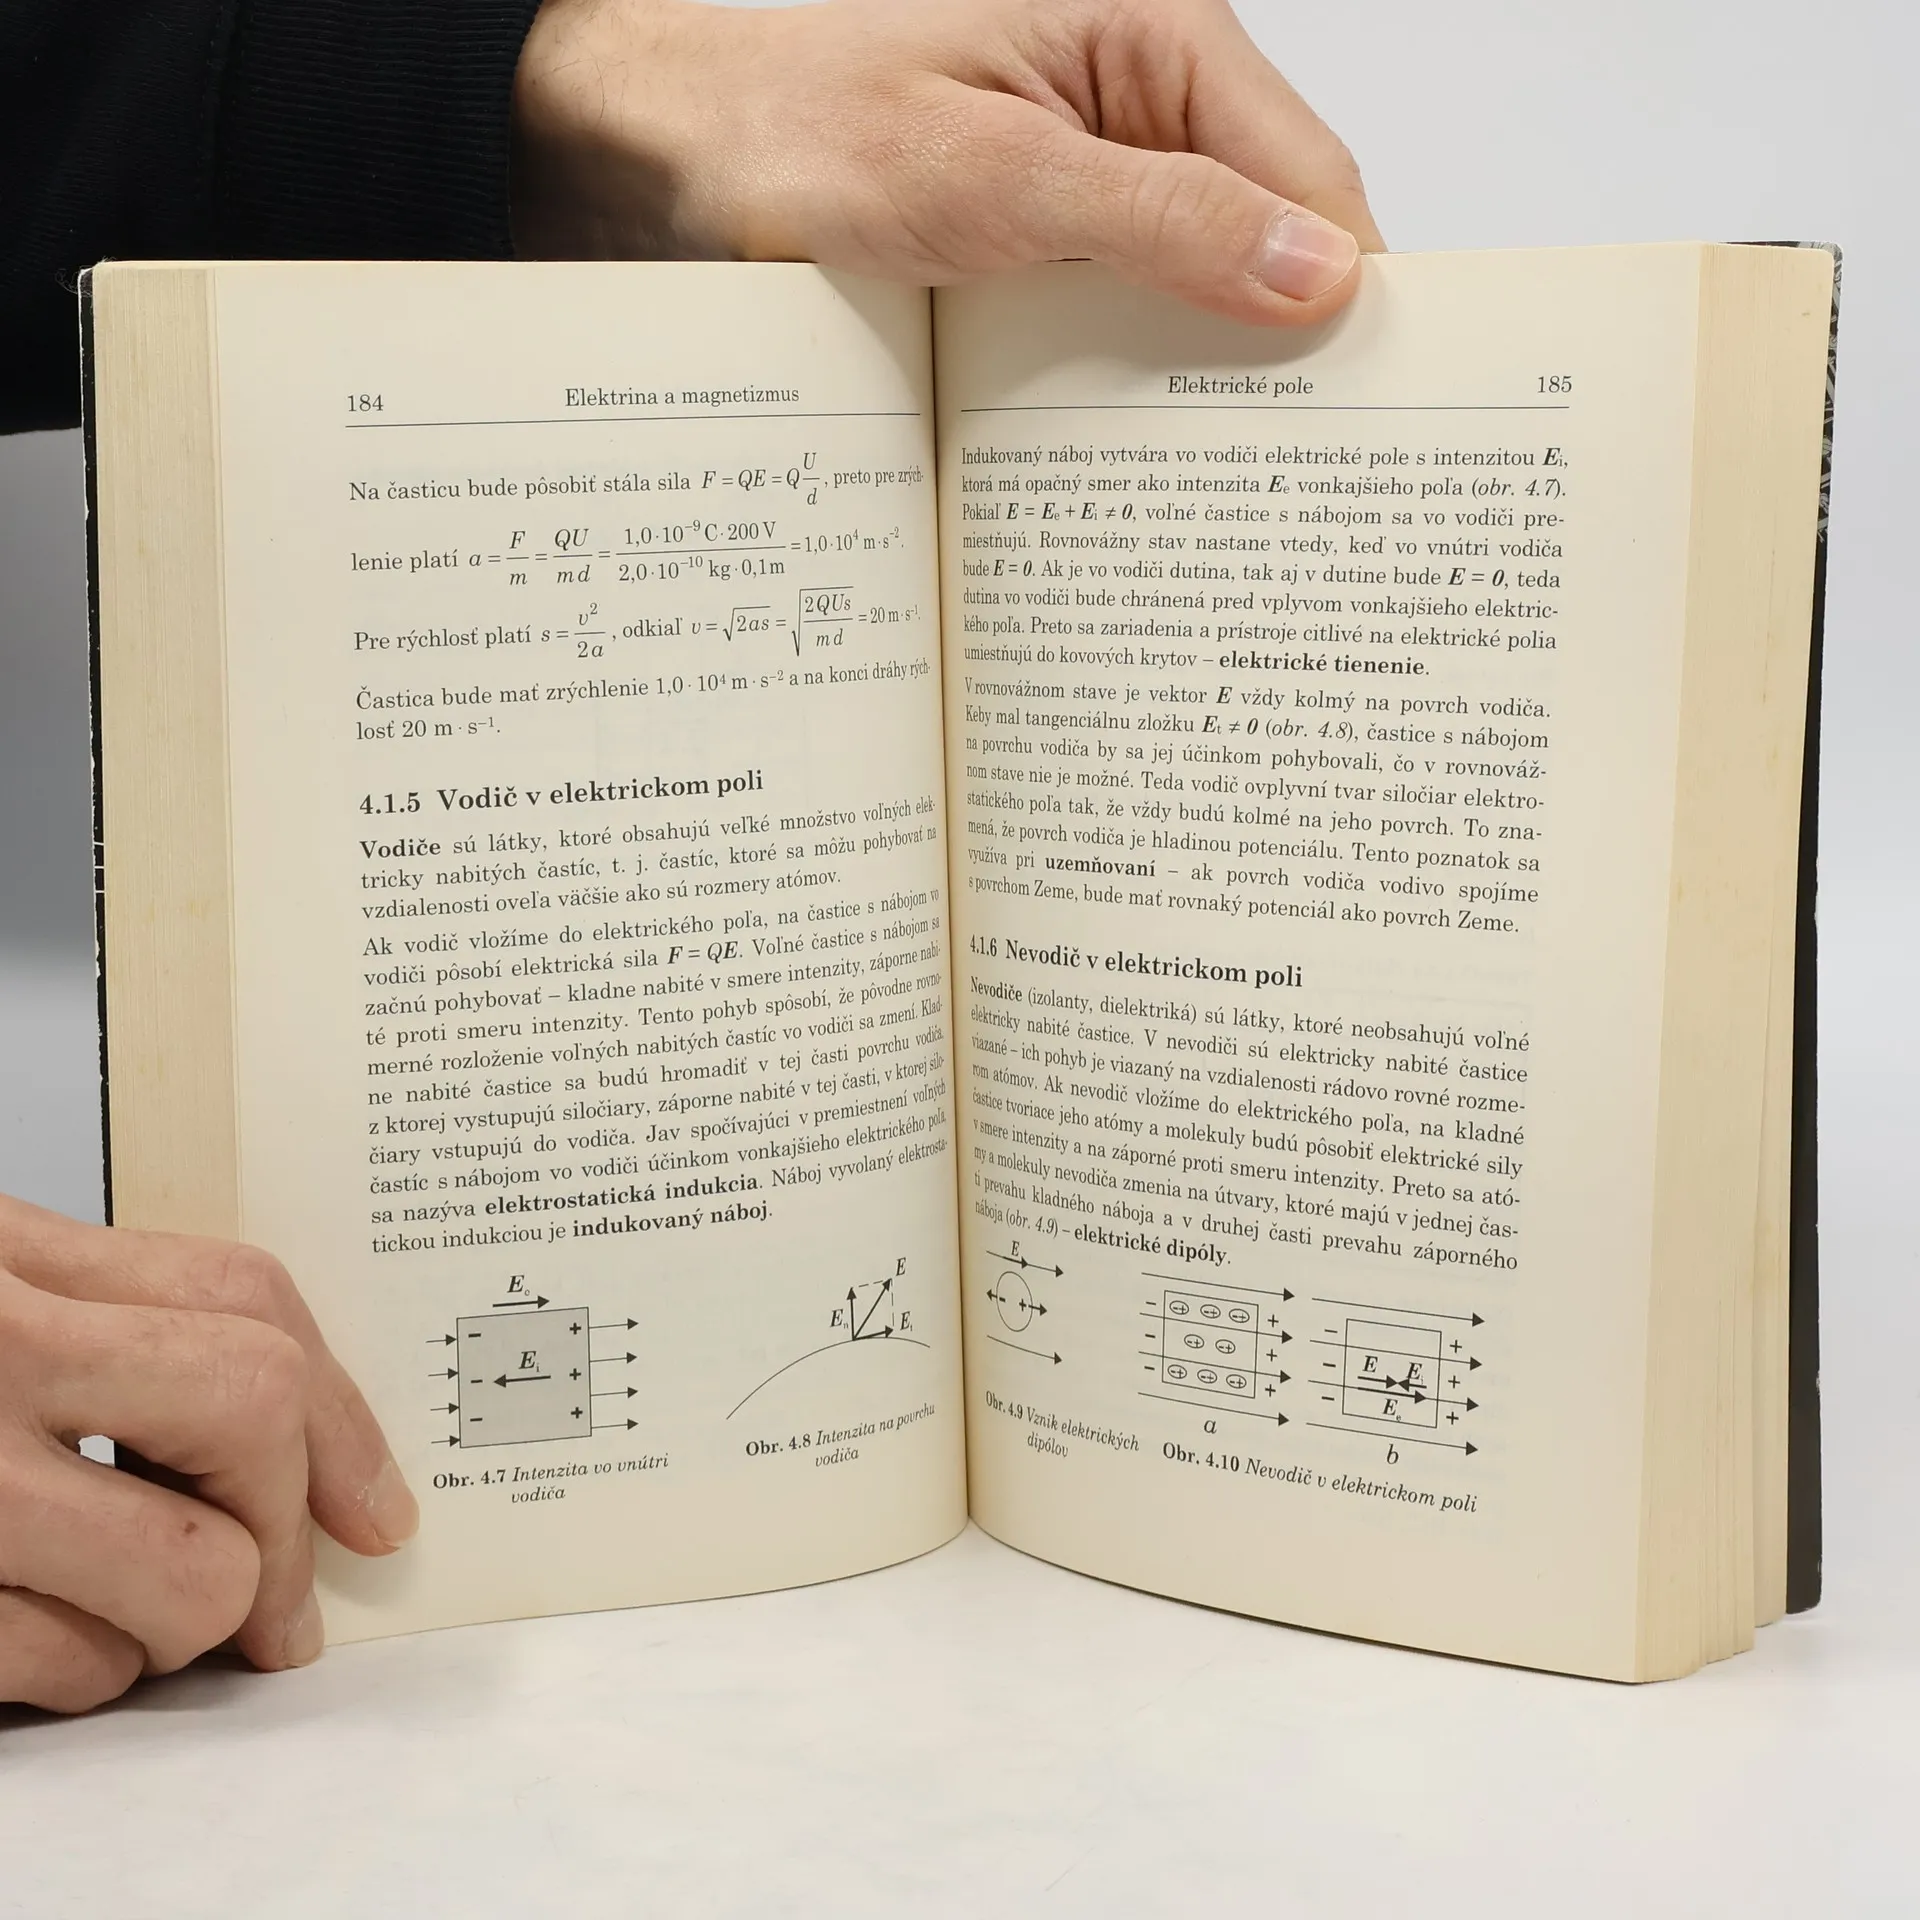 184 Elektrina a magnetizmus
Na časticu bude pôsobiť stála sila F = QE = Q U/d, preto pre zrých-
lenie platí a = F/m = QU/md = 1,0·10⁻⁹ C·200 V / 2,0·10⁻¹⁰ kg·0,1m = 1,0·10⁴ m·s⁻².
Pre rýchlosť platí s = v²/2a, odkiaľ v = √2as = √2QUs/md = 20 m·s⁻¹.
Častica bude mať zrýchlenie 1,0 · 10⁴ m · s⁻² a na konci dráhy rých-
losť 20 m · s⁻¹.
4.1.5 Vodič v elektrickom poli
Vodiče sú látky, ktoré obsahujú veľké množstvo voľných elek-
tricky nabitých častíc, t. j. častíc, ktoré sa môžu pohybovať na
vzdialenosti oveľa väčšie ako sú rozmery atómov.
Ak vodič vložíme do elektrického poľa, na častice s nábojom vo
vodiči pôsobí elektrická sila F = QE. Voľné častice s nábojom sa
začnú pohybovať – kladne nabité v smere intenzity, záporne nabi-
té proti smeru intenzity. Tento pohyb spôsobí, že pôvodne rovno-
merné rozloženie voľných nabitých častíc vo vodiči sa zmení. Klad-
ne nabité častice sa budú hromadiť v tej časti povrchu vodiča,
z ktorej vystupujú siločiary, záporne nabité v tej časti, v ktorej silo-
čiary vstupujú do vodiča. Jav spočívajúci v premiestnení voľných
častíc s nábojom vo vodiči účinkom vonkajšieho elektrického poľa
sa nazýva elektrostatická indukcia. Náboj vyvolaný elektrosta-
tickou indukciou je indukovaný náboj.
Eₑ
Eᵢ
– – –
+ + +
Obr. 4.7 Intenzita vo vnútri
vodiča
E
Eₙ
Eₜ
Obr. 4.8 Intenzita na povrchu
vodiča
Elektrické pole 185
Indukovaný náboj vytvára vo vodiči elektrické pole s intenzitou Eᵢ,
ktorá má opačný smer ako intenzita Eₑ vonkajšieho poľa (obr. 4.7).
Pokiaľ E = Eₑ + Eᵢ ≠ 0, voľné častice s nábojom sa vo vodiči pre-
miestňujú. Rovnovážny stav nastane vtedy, keď vo vnútri vodiča
bude E = 0. Ak je vo vodiči dutina, tak aj v dutine bude E = 0, teda
dutina vo vodiči bude chránená pred vplyvom vonkajšieho elektric-
kého poľa. Preto sa zariadenia a prístroje citlivé na elektrické polia
umiestňujú do kovových krytov – elektrické tienenie.
V rovnovážnom stave je vektor E vždy kolmý na povrch vodiča.
Keby mal tangenciálnu zložku Eₜ ≠ 0 (obr. 4.8), častice s nábojom
na povrchu vodiča by sa jej účinkom pohybovali, čo v rovnováž-
nom stave nie je možné. Teda vodič ovplyvní tvar siločiar elektro-
statického poľa tak, že vždy budú kolmé na jeho povrch. To zna-
mená, že povrch vodiča je hladinou potenciálu. Tento poznatok sa
využíva pri uzemňovaní – ak povrch vodiča vodivo spojíme
s povrchom Zeme, bude mať rovnaký potenciál ako povrch Zeme.
4.1.6 Nevodič v elektrickom poli
Nevodiče (izolanty, dielektriká) sú látky, ktoré neobsahujú voľné
elektricky nabité častice. V nevodiči sú elektricky nabité častice
viazané – ich pohyb je viazaný na vzdialenosti rádovo rovné rozme-
rom atómov. Ak nevodič vložíme do elektrického poľa, na kladné
častice tvoriace jeho atómy a molekuly budú pôsobiť elektrické sily
v smere intenzity a na záporné proti smeru intenzity. Preto sa ató-
my a molekuly nevodiča zmenia na útvary, ktoré majú v jednej čas-
ti prevahu kladného náboja a v druhej časti prevahu záporného
náboja (obr. 4.9) – elektrické dipóly.
E
– +
Obr. 4.9 Vznik elektrických
dipólov
a
E Eᵢ
Eₑ
b
Obr. 4.10 Nevodič v elektrickom poli